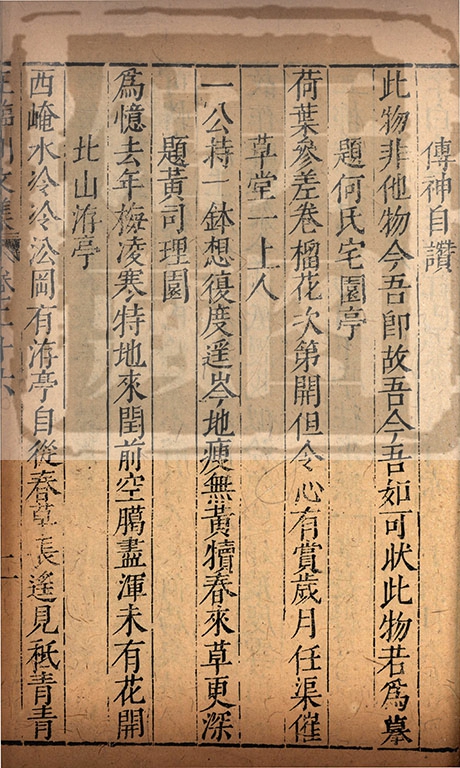 傳神自讚
此物非他物今吾即故吾今吾如可狀此物若爲摹
題何氏宅園亭
荷葉參差卷榴花次第開但令心有賞歲月任渠催
草堂一上人
一公持一鉢想復度遥岑地瘦無黃犢春來草更深
題黃司理園
爲憶去年梅凌寒特地來閏前空臈盡渾未有花開
北山洊亭
西崦水泠泠㳂岡有洊亭自從春草長遥見秪青青
王臨川文集卷二十六 二